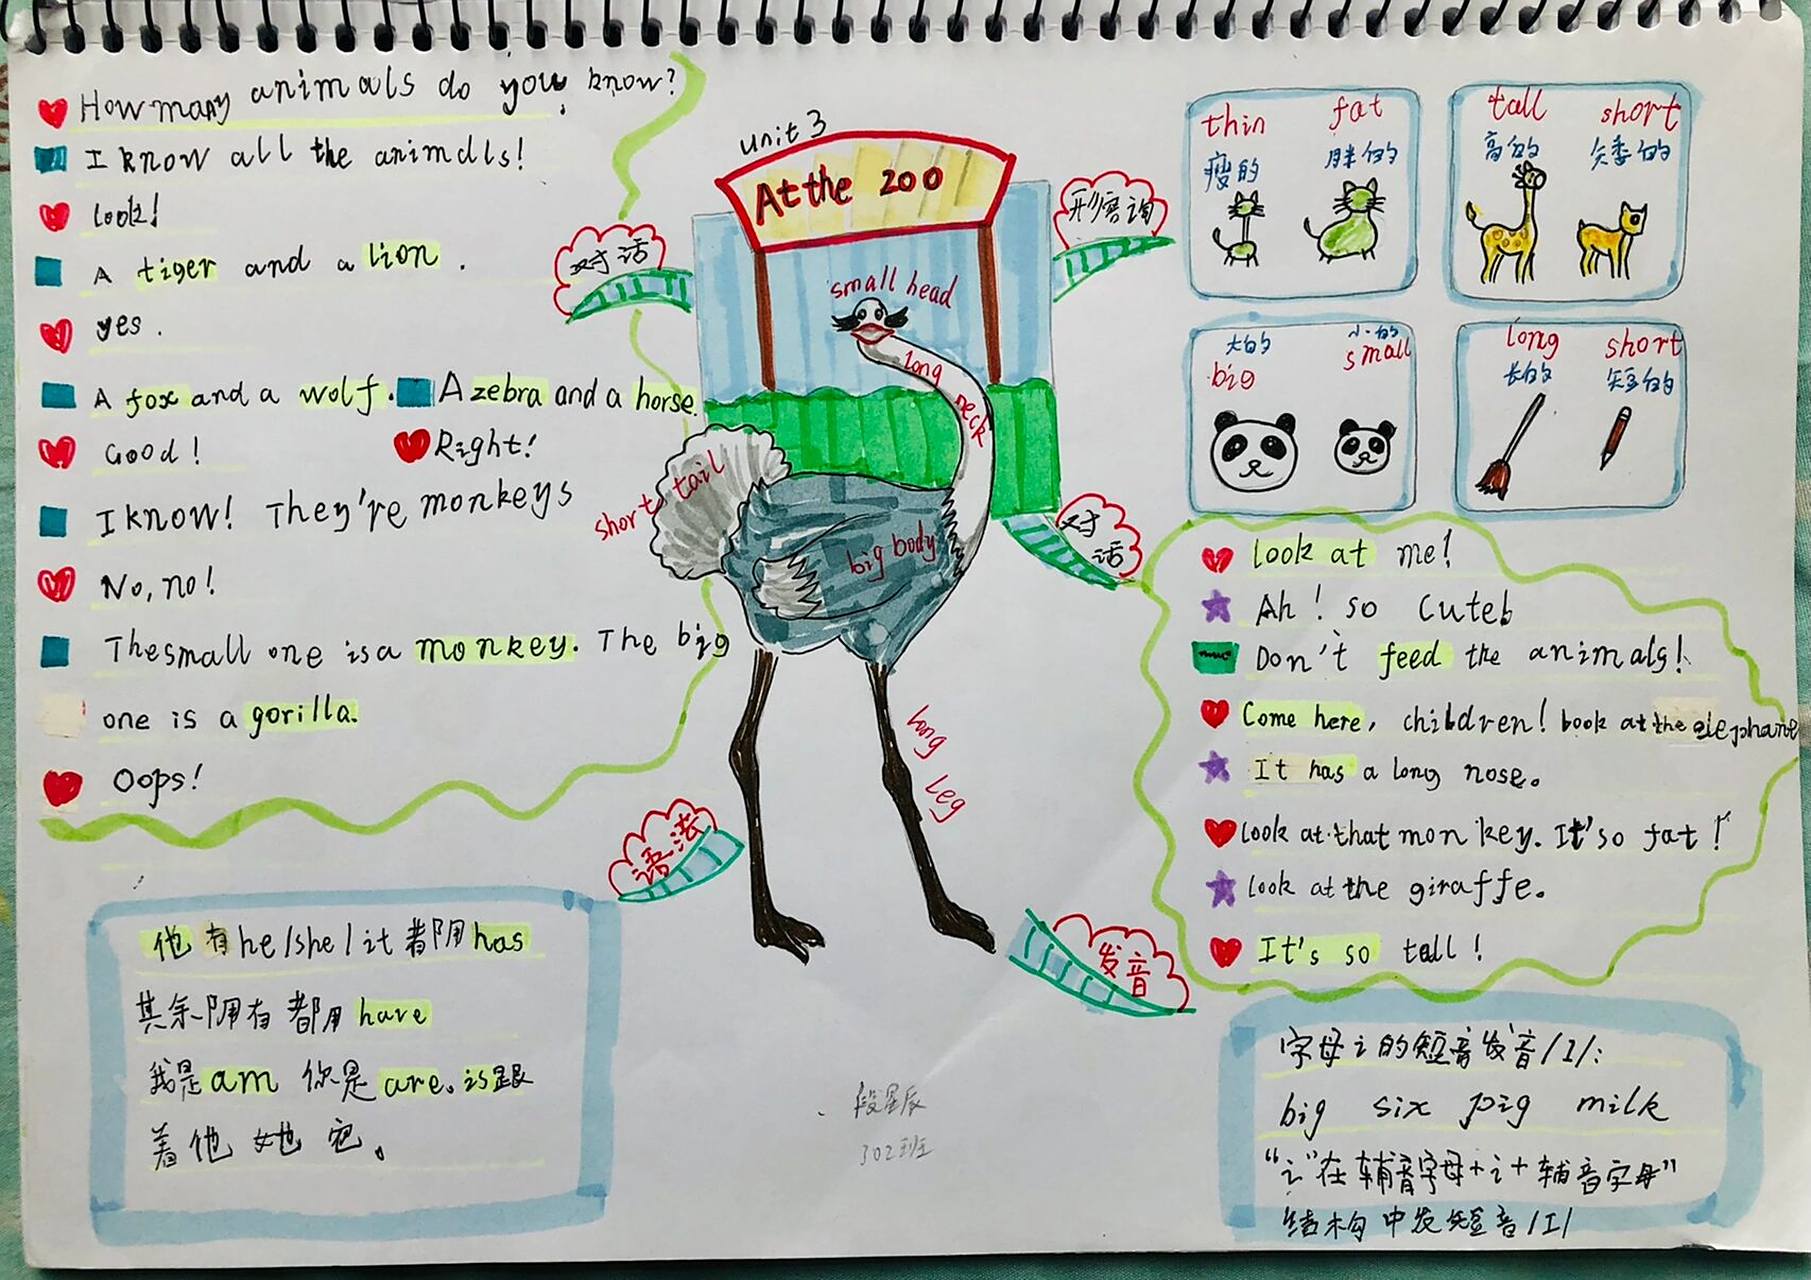 How many animals do you know?
I know all the animals!
look!
A tiger and a lion.
yes.
A fox and a wolf. A zebra and a horse.
Good! Right!
I know! They're monkeys
No, no!
The small one is a monkey. The big
one is a gorilla.
Oops!
对话
unit 3
At the zoo
small head
long neck
short tail
big body
long leg
形容词
thin fat
瘦的 胖的
tall short
高的 矮的
大的 小的
big small
long short
长的 短的
对话
look at me!
Ah! so cute
Don't feed the animals!
Come here, children! look at the elephant
It has a long nose.
look at that monkey. It's so fat!
look at the giraffe.
It's so tall!
语法
他有 he/she/it 都用 has
其余用有都用 have
我是 am 你是 are。is跟
着他 她 它。
发音
字母 i 的短音发音/I/:
big six pig milk
“i”在辅音字母+i+辅音字母”
结构中发短音/I/
段星辰
302班